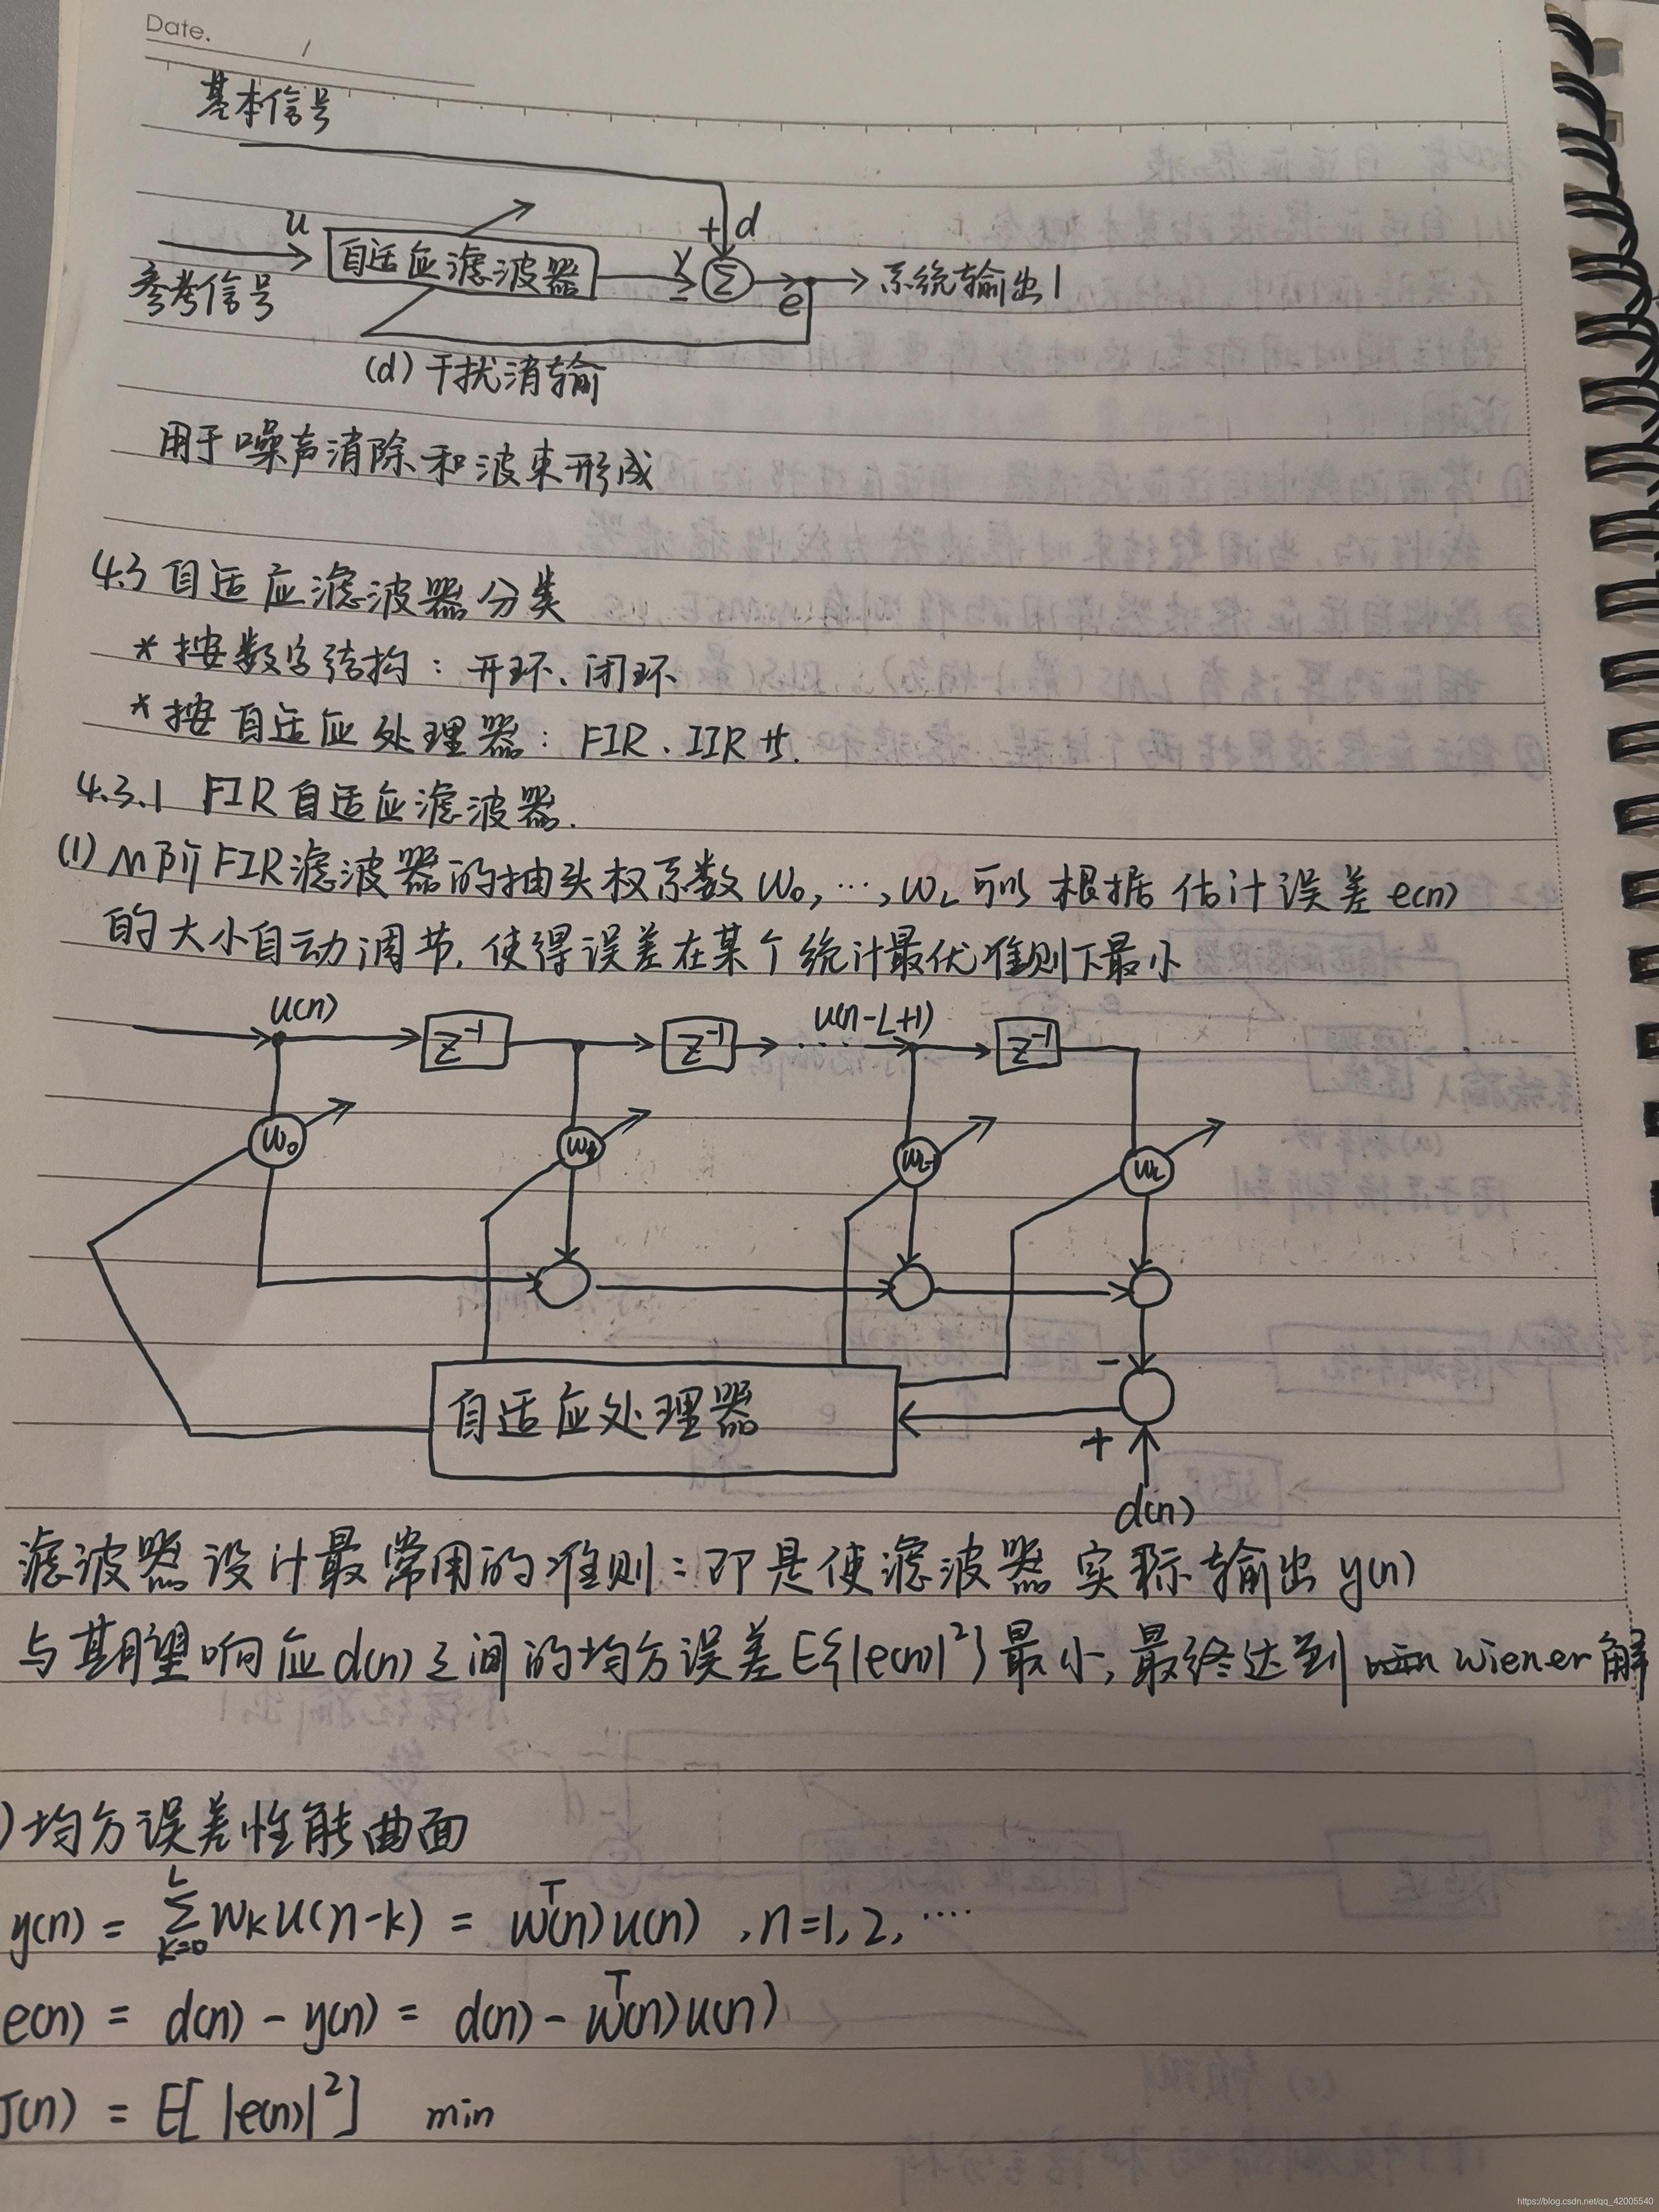 Date.
基本信号
u
+ d
自适应滤波器
y
-
Σ
e
系统输出1
参考信号
(d) 干扰消输
用于噪声消除和波束形成
4.3 自适应滤波器分类
* 按数字结构：开环、闭环
* 按自适应处理器：FIR、IIR
4.3.1 FIR自适应滤波器.
(1) M阶FIR滤波器的抽头权系数 w₀, …, w_L 可以根据估计误差 e(n)
的大小自动调节, 使得误差在某个统计最优准则下最小
u(n)
z⁻¹
z⁻¹
u(n-L+1)
z⁻¹
w₀
w_L
自适应处理器
-
+
d(n)
滤波器设计最常用的准则：即是使滤波器实际输出 y(n)
与期望响应d(n)之间的均方误差E{|e(n)|²}最小, 最终达到 wiener解
)均方误差性能曲面
y(n) = Σ_{k=0}^{L} w_k u(n-k) = w^T(n)u(n) , n=1, 2, ····
e(n) = d(n) - y(n) = d(n) - w^T(n)u(n)
J(n) = E[ |e(n)|² ] min
https://blog.csdn.net/qq_42005540